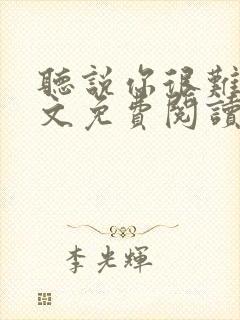 聽說你很難
文免費閱讀
李光輝